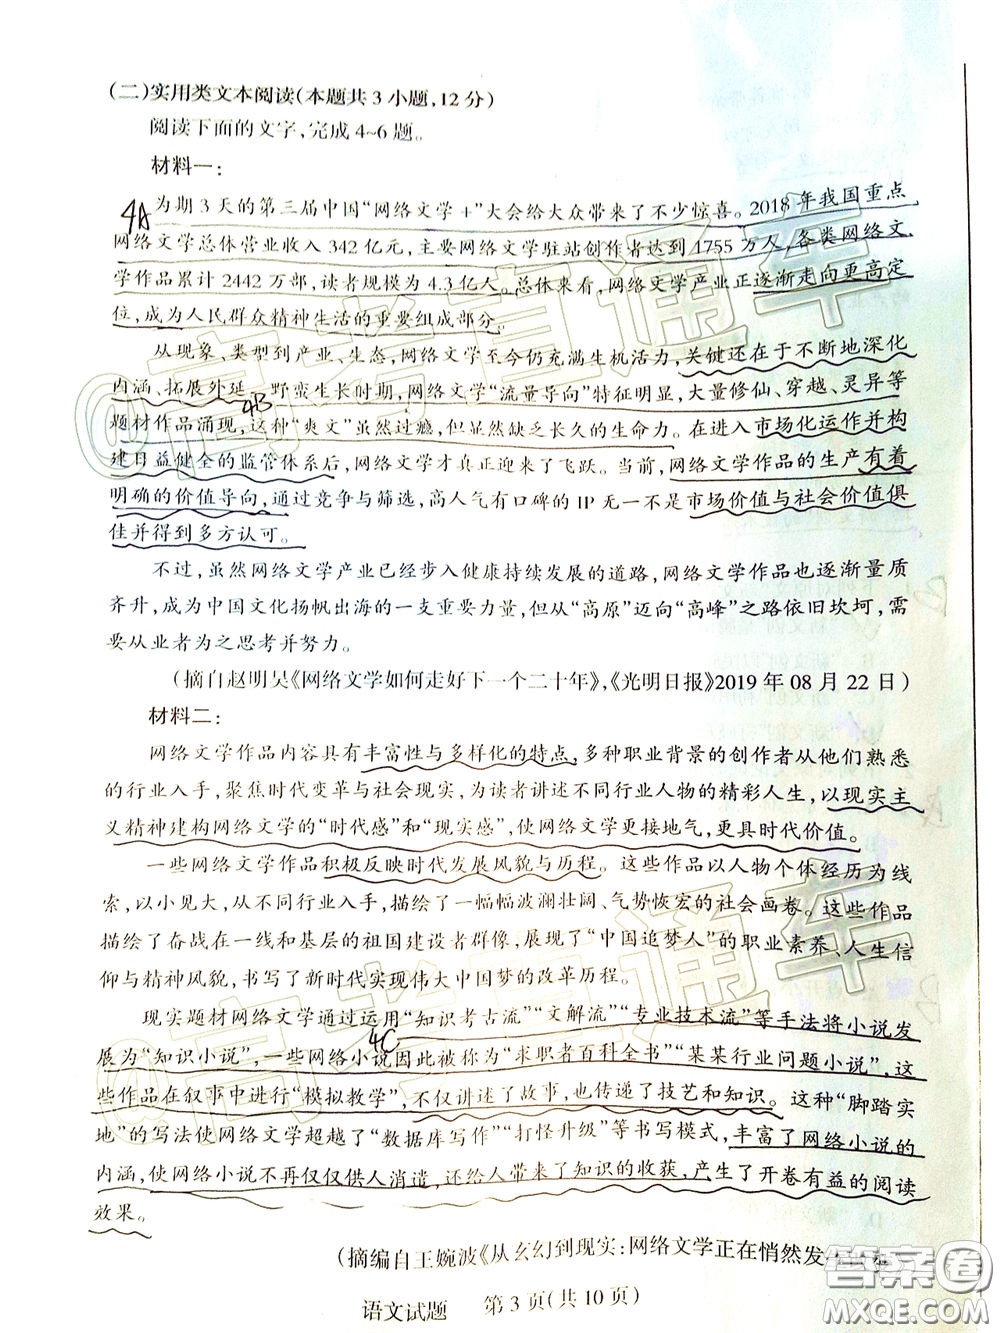 (二)实用类文本阅读(本题共3小题,12分)
阅读下面的文字,完成4~6题。
材料一:
4A
为期3天的第三届中国“网络文学+”大会给大众带来了不少惊喜。2018年我国重点
网络文学总体营业收入342亿元,主要网络文学驻站创作者达到1755万人,各类网络文
学作品累计2442万部,读者规模为4.3亿人。总体来看,网络文学产业正逐渐走向更高定
位,成为人民群众精神生活的重要组成部分。
从现象、类型到产业、生态,网络文学至今仍充满生机活力,关键还在于不断地深化
内涵、拓展外延。野蛮生长时期,网络文学“流量导向”特征明显,大量修仙、穿越、灵异等
4B
题材作品涌现,这种“爽文”虽然过瘾,但显然缺乏长久的生命力。在进入市场化运作并构
建日益健全的监管体系后,网络文学才真正迎来了飞跃。当前,网络文学作品的生产有着
明确的价值导向,通过竞争与筛选,高人气有口碑的IP无一不是市场价值与社会价值俱
佳并得到多方认可。
不过,虽然网络文学产业已经步入健康持续发展的道路,网络文学作品也逐渐量质
齐升,成为中国文化扬帆出海的一支重要力量,但从“高原”迈向“高峰”之路依旧坎坷,需
要从业者为之思考并努力。
(摘自赵明昊《网络文学如何走好下一个二十年》,《光明日报》2019年08月22日)
材料二:
网络文学作品内容具有丰富性与多样化的特点,多种职业背景的创作者从他们熟悉
的行业入手,聚焦时代变革与社会现实,为读者讲述不同行业人物的精彩人生,以现实主
义精神建构网络文学的“时代感”和“现实感”,使网络文学更接地气,更具时代价值。
一些网络文学作品积极反映时代发展风貌与历程。这些作品以人物个体经历为线
索,以小见大,从不同行业入手,描绘了一幅幅波澜壮阔、气势恢宏的社会画卷。这些作品
描绘了奋战在一线和基层的祖国建设者群像,展现了“中国追梦人”的职业素养、人生信
仰与精神风貌,书写了新时代实现伟大中国梦的改革历程。
现实题材网络文学通过运用“知识考古流”“文解流”“专业技术流”等手法将小说发
4C
展为“知识小说”,一些网络小说因此被称为“求职者百科全书”“某某行业问题小说”,这
些作品在叙事中进行“模拟教学”,不仅讲述了故事,也传递了技艺和知识。这种“脚踏实
地”的写法使网络文学超越了“数据库写作”“打怪升级”等书写模式,丰富了网络小说的
内涵,使网络小说不再仅仅供人消遣,还给人带来了知识的收获,产生了开卷有益的阅读
效果。
(摘编自王婉波《从玄幻到现实:网络文学正在悄然发
语文试题 第3页(共10页)
@高考直通车
@高考直通车
答案卷
MXQE.COM